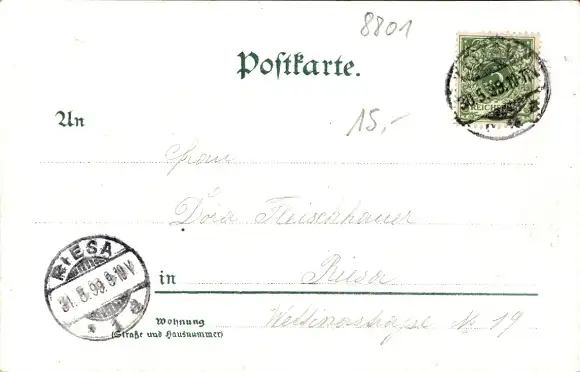 8801
Postkarte.
30.5.99.10-11V
REICHSPOST
An
15,-
Frau
Dora Fleischhauer
RIESA
31.5.99.9-10V
* 1 a
in Riesa
Wohnung
(Straße und Hausnummer)
Wettinerstrasse № 19